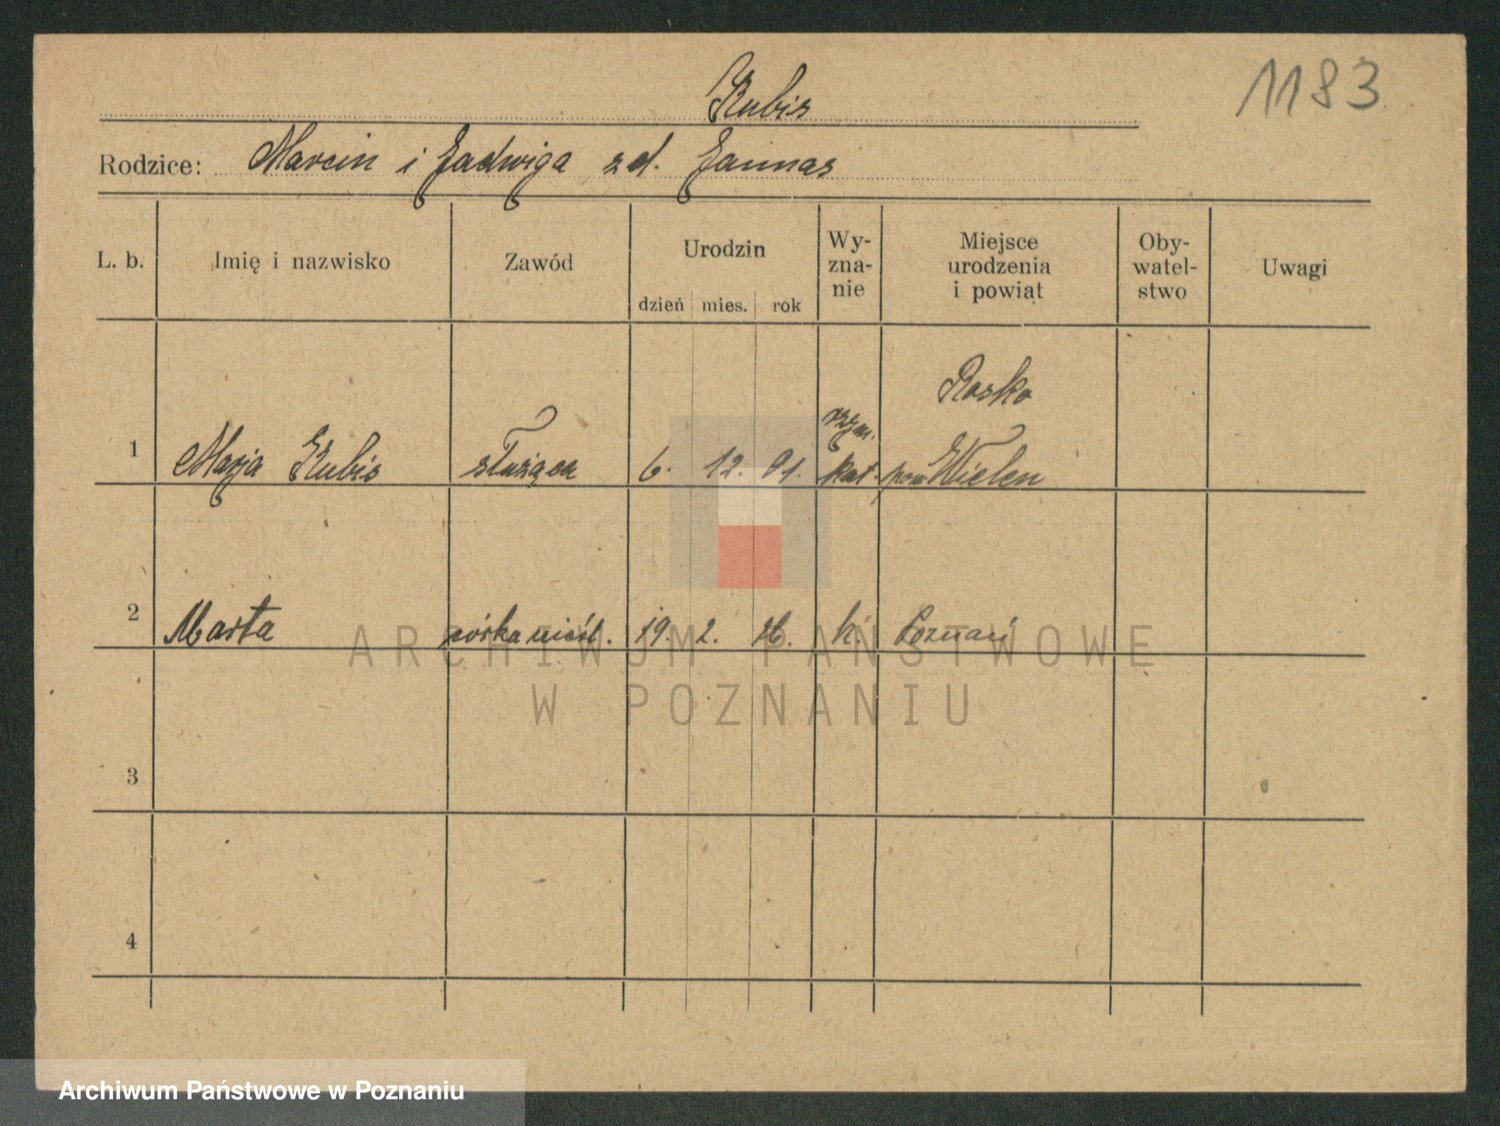 1183
Kubis
Rodzice: Marcin i Jadwiga zd. Jannas
L. b. Imię i nazwisko Zawód Urodzin dzień mies. rok Wy-zna-nie Miejsce urodzenia i powiąt Oby-watel-stwo Uwagi
Rosko
rzym.
1 Marja Kubis służąca 6. 12. 01. kat. pow Wielen
2 Marta córka nieśl. 19. 2. 26. k. Poznań
3
4
ARCHIWUM PAŃSTWOWE
W POZNANIU
Archiwum Państwowe w Poznaniu